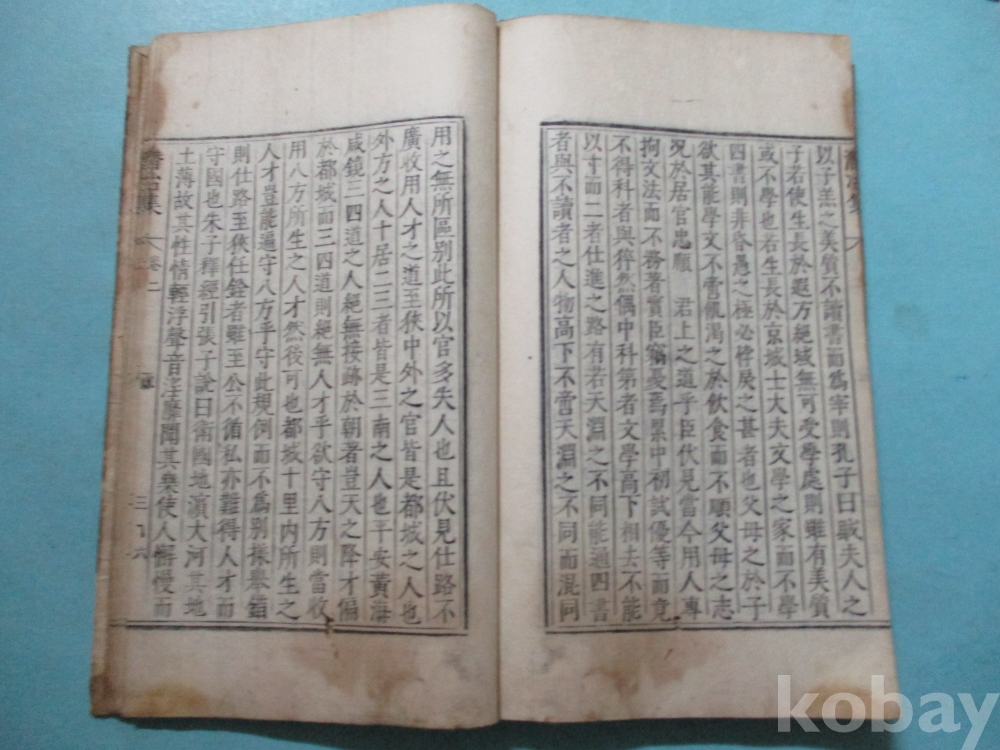 以子羔之美質不讀書而爲宰則孔子曰賊夫人之
子若使生長於遐方絕域無可受學處則雖有美質
或不學也右生長於京城士大夫文學之家而不學
四書則非昏愚之極必悖戾之甚者也父母之於子
欲其能學文不啻飢渴之於飮食而不順父母之志
况於居官忠願君上之道乎臣伏見當今用人專
拘文法而不務者實臣竊憂焉累中初試優等而竟
不得科者與猝然偶中科第者文學高下相去不能
以寸而二者仕進之路有若天淵之不同能通四書
者與不讀者之人物高下不啻天淵之不同而混同
用之無所區別此所以官多失人也且伏見仕路不
廣收用人才之道至狹中外之官皆是都城之人也
外方之人十居二三者皆是三南之人也平安黃海
咸鏡三四道之人絕無接跡於朝著豈天之降才偏
於都城而三四道則絕無人才乎欲守八方則當收
用八方所生之人才然後可也都城十里內所生之
人才豈能遍守八方乎守此規例而不爲別採擧錯
則仕路至狹任銓者雖至公不循私亦難得人才而
守國也朱子釋經引張子說曰衛國地濱大河其地
土薄故其性情輕浮聲音淫靡聞其樂使人懈慢而
集
卷二
三
kobay